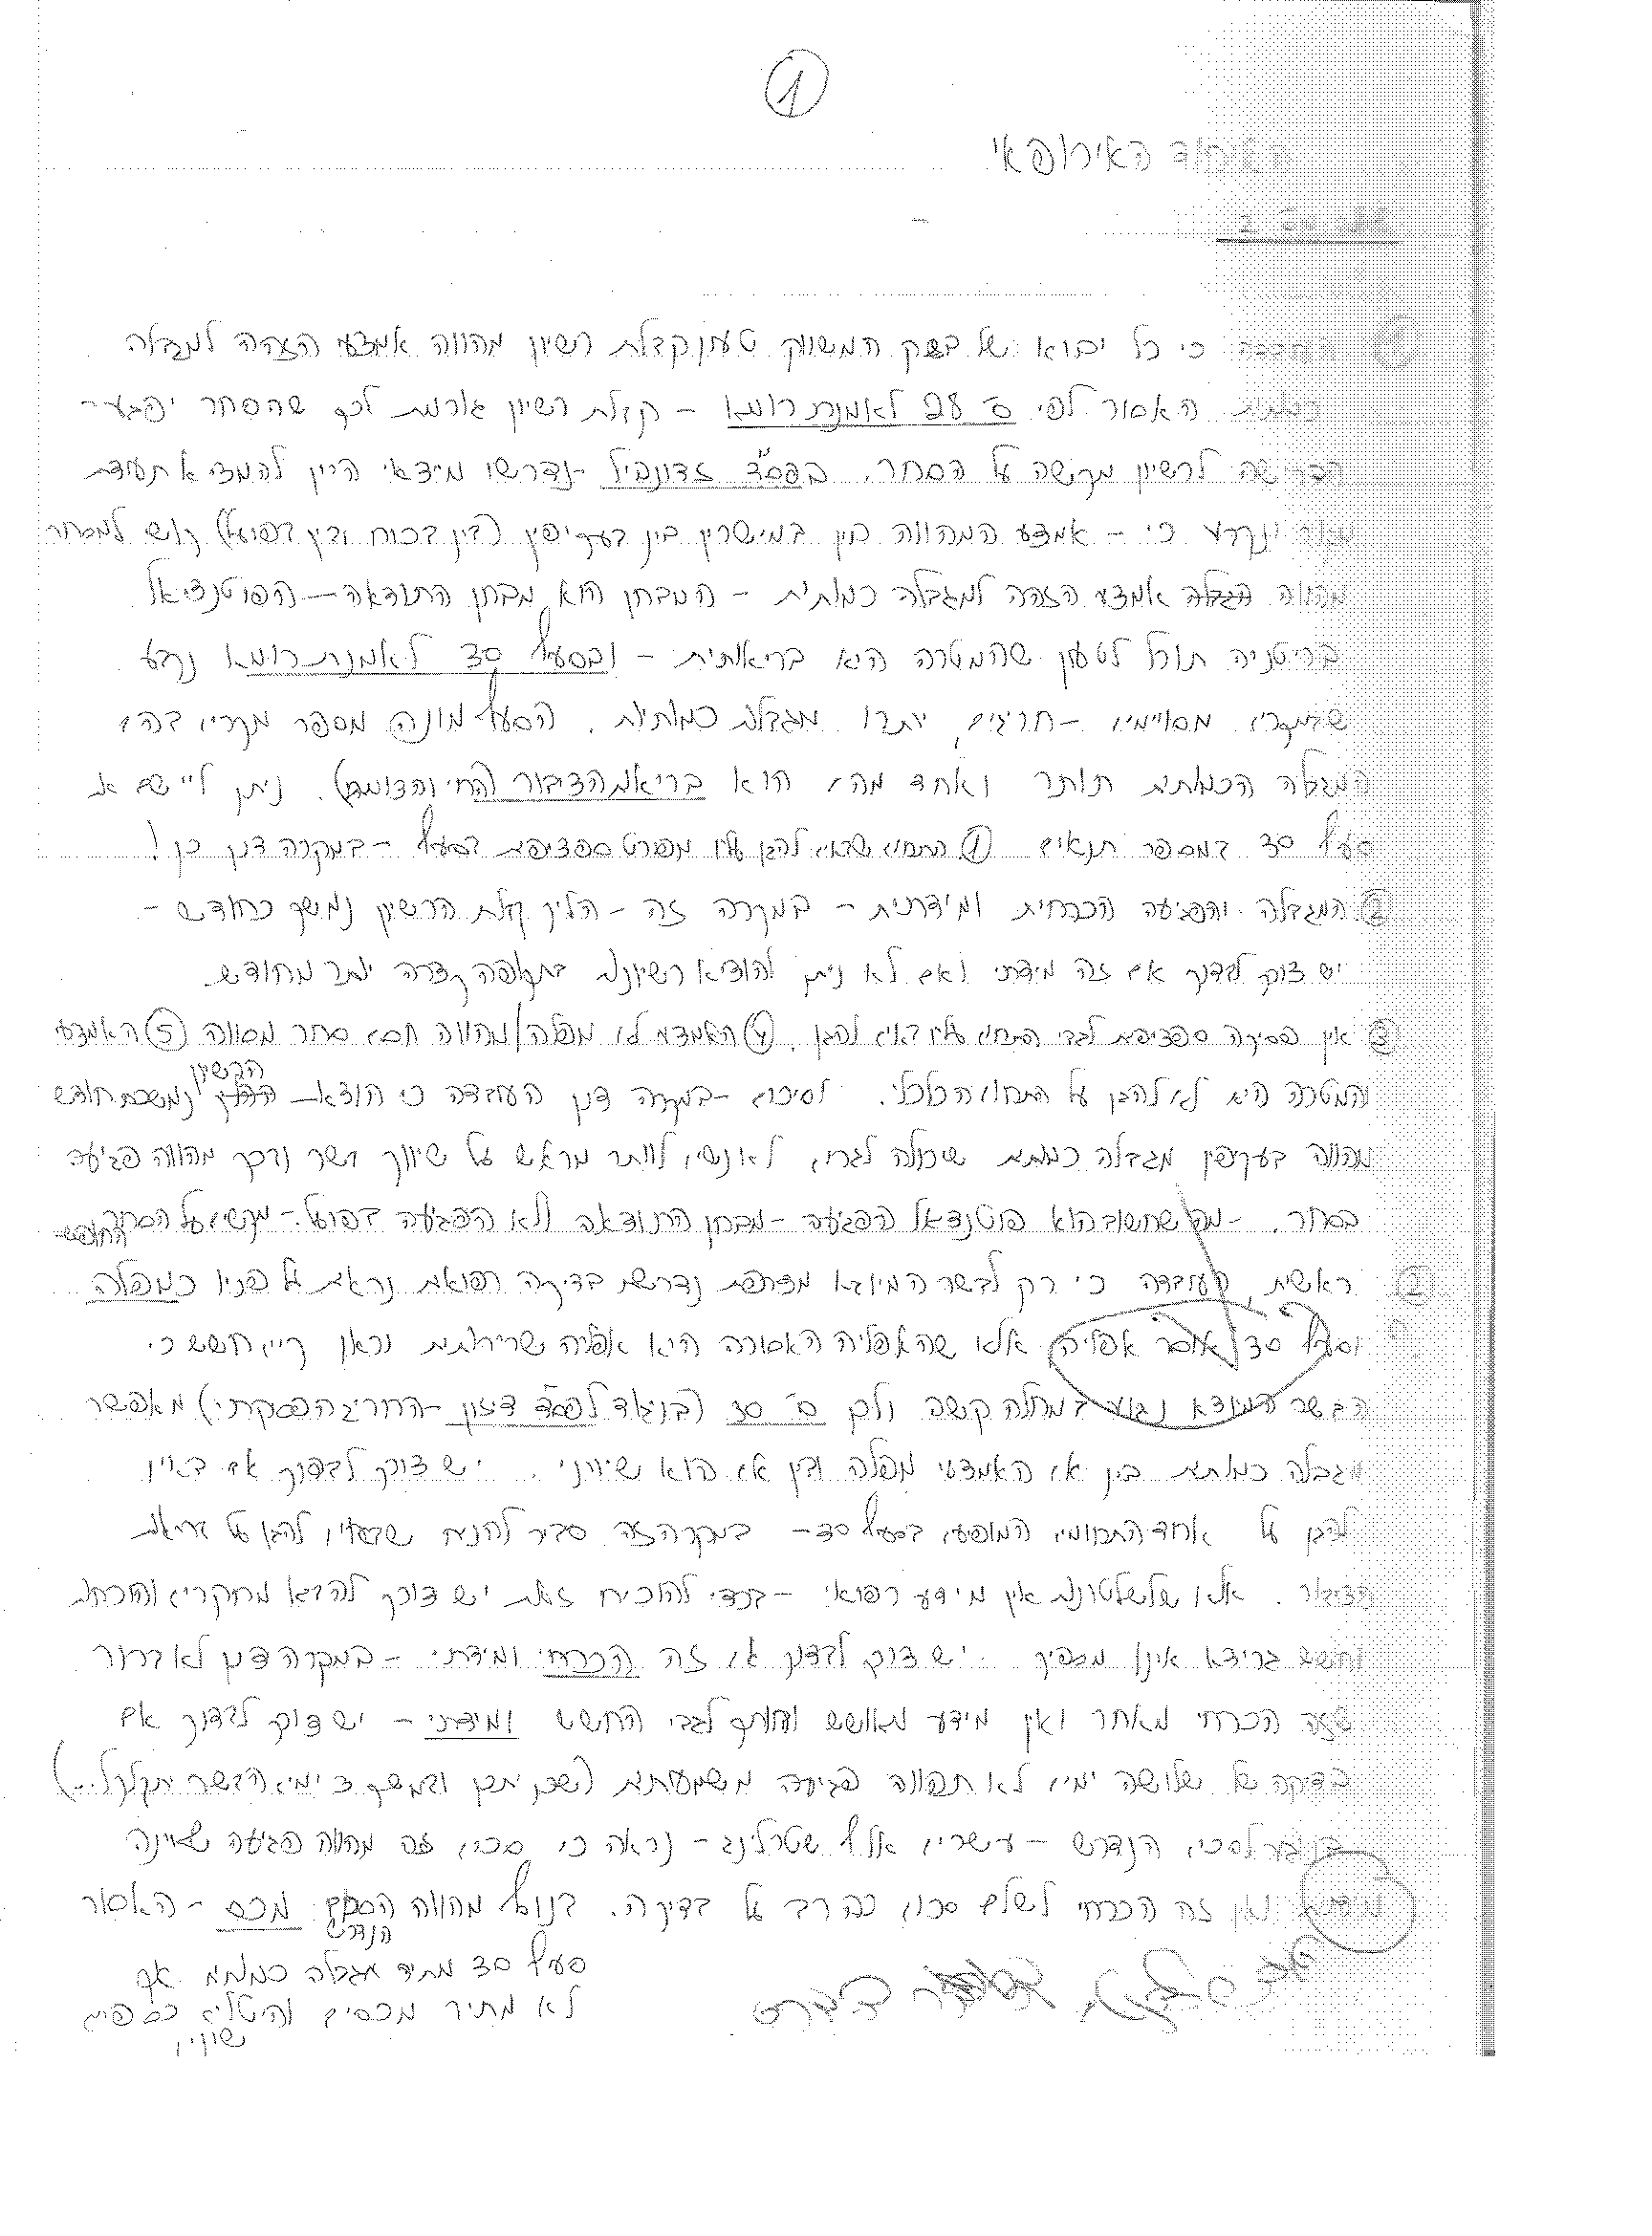 1
האיחוד האירופאי
1 העובדה כי כל יבוא של בשר המשווק טעון קבלת רשיון מהווה אמצעי הזהה למגבלה
כמותית האסור לפי ס' 28 לאמנת רומא – קבלת רשיון גורמת לכך שהסחר יפגע –
הדרישה לרשיון מקשה על הסחר. בפס"ד דונוביל נדרשו מיצאי היין להמציא תעודת
נקבע כי – אמצעי המהווה בין במישרין בין בעקיפין (בין בכוח ובין בפועל) קושי למסחר
מהווה אמצעי הזהה למגבלה כמותית – המבחן הוא מבחן התוצאה – הפוטנציאל
בריטניה תוכל לטעון שהמטרה היא בריאותית – ובסעיף 30 לאמנת רומא נקבע
שבמקרים מסויימים – חריגים, יותרו מגבלות כמותיות. הסעיף מונה מספר מקרים בהם
המגבלה הכמותית תותר ואחד מהם הוא בריאות הציבור (החי והצומח). ניתן ליישם את
סעיף 30 במספר תנאים 1 התחום שבאים להגן עליו מפורט ספציפית בסעיף – במקרה דנן כן!
2 המגבלה והפגיעה הכרחית ומידתית – במקרה זה – הליך קבלת הרשיון נמשך כחודש –
יש צורך לבדוק אם זה מידתי ואם לא ניתן להוציא רשיונות בתקופה קצרה יותר מחודש.
3 אין פסיקה ספציפית לגבי התחום עליו באים להגן. 4 האמצעי לא מפלה/מהווה חסם סחר מסווה 5 האמצעי
והמטרה היא לא להגן על התחום הכלכלי. לסיכום – במקרה דנן העובדה כי הוצאת הרשיון נמשכת חודש
מהווה בעקיפין מגבלה כמותית שיכולה לגרום לאנשים לוותר מראש על שיווק בשר ובכך מהווה פגיעה
בסחר. – מה שחשוב הוא פוטנציאל הפגיעה – מבחן התוצאה ולא הפגיעה בפועל. – מקשים על הסחר החופשי
2 ראשית, העובדה כי רק לבשר המיובא מצרפת נדרשת בדיקה רפואית נראית על פניו כמפלה
וסעיף 30 אוסר אפליה, אלא שהאפליה האסורה היא אפליה שרירותית וכאן קיים חשש כי
הבשר המיובא נגוע במחלה קשה ולכן ס' 30 (בניגוד לפס"ד דיזון – החריג הפסיקתי) מאפשר
מגבלה כמותית בין אם האמצעי מפלה ובין אם הוא שיוויוני. יש צורך לבדוק אם באים
להגן על אחד התחומים המופיעים בסעיף 30 – במקרה זה סביר להניח שרוצים להגן על בריאות
הציבור. אלא שלשלטונות אין מידע רפואי – בכדי להוכיח זאת יש צורך להביא מחקרים והוכחות
וחשש גרידא אינו מספיק. יש צורך לבדוק אם זה הכרחי ומידתי – במקרה דנן לא ברור
שזה הכרחי מאחר ואין מידע מאושש ותקף לגבי החשש ומידתי – יש צורך לבדוק אם
בדיקה של שלושה ימים לא תהווה פגיעה משמעותית (שכן יתכן ובמשך 3 ימים הבשר יתקלקל...)
בנוגע לסכום הנדרש – עשרים אלף שטרלינג – נראה כי סכום זה מהווה פגיעה שאינה
מידתית ואין זה הכרחי לשלם סכום כה רב על בדיקה. בנוסף מהווה הסכום הנדרש מכס – האסור
סעיף 30 מתיר מגבלה כמותית אך
לא מתיר מכסים והיטלים כספיים
שונים